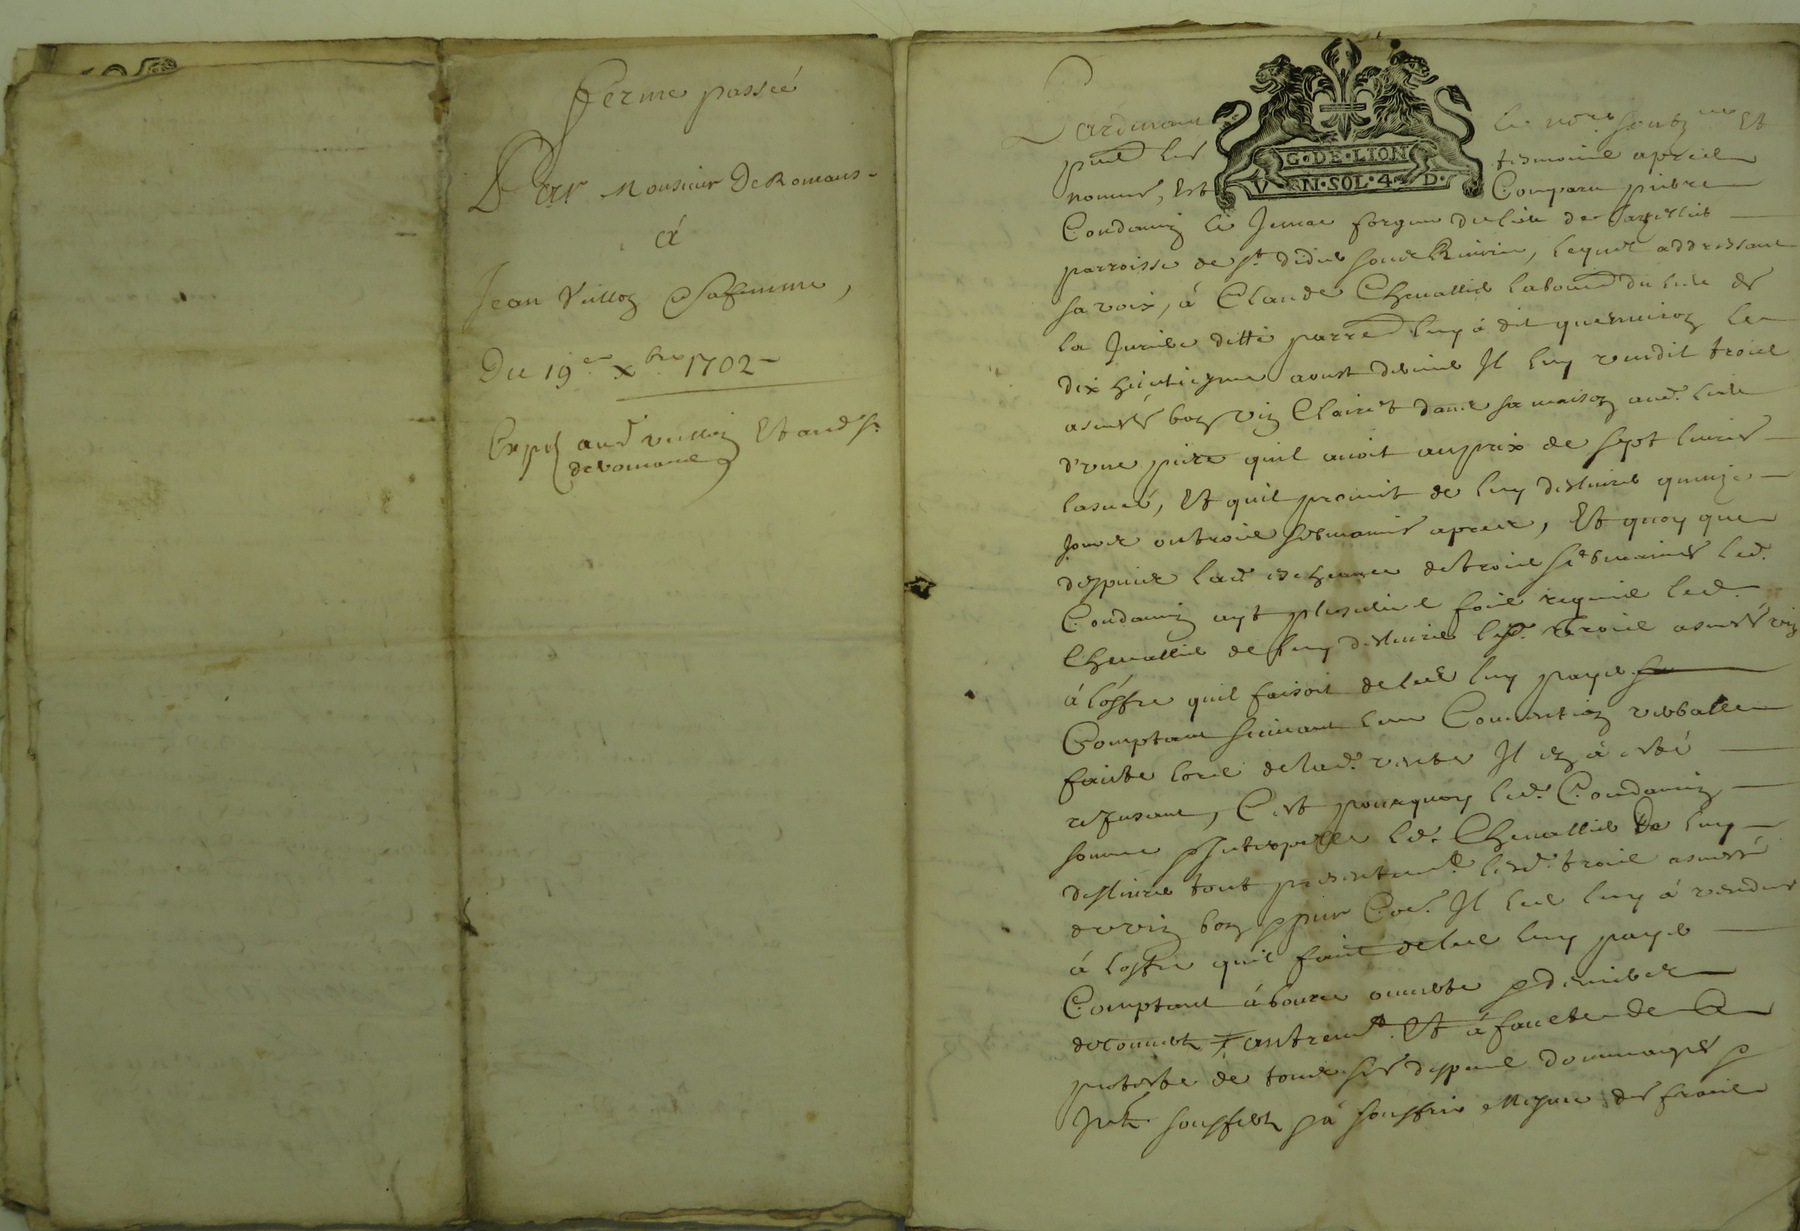 Ferme passée
Par Monsieur De Romans
à
Jean Vulloz & sa femme,
Du 19e xbre 1702
Expé aud. Vulloz Et aud. Sr
de romans
Pardevant le nore soubzne Et
pnt les tesmoins apres
nommés, Est Comparu pierre
G. DE. LION
V N. SOL. 4. D.
Condamin le Jeune du lieu de
parroisse de St. Didier soubz Riverie, lequel addressant
sa voix, à Claude Chevallier labour du lieu de
la ditte parre luy à dit qu'environ le
dix huictiesme aoust dernier Il luy vendit trois
asnées bon vin Clairet dans sa maison aud. lieu
d'une piece quil avoit au prix de sept livres
lasnée, Et quil promit de luy deslivrer quinze
jours ou trois sepmaines apres, Et quoy que
despuis lad. escheance de trois sepmaines led.
Condamin ayt plusieurs fois requis led.
Chevallier de luy deslivrer lesd. trois asnées vin
à l'offre quil faisoit de les luy payer
Comptant suivant leur Convention verballe
faitte lors de lad. vente Il en à esté
refusant, C'est pourquoy led. Condamin
somme & Interpelle led. Chevallier De luy
deslivrer tout presentemt. lesd. trois asnées
de vin bon & pur Coe. Il les luy à vendus
à l'offre quil fait de les luy payer
Comptant à bource ouverte & deniers
descouverts autremt. Et à faute de Ce
proteste de tous ses despens dommages &
Jnts soufferts & à souffrir Mesme des frais